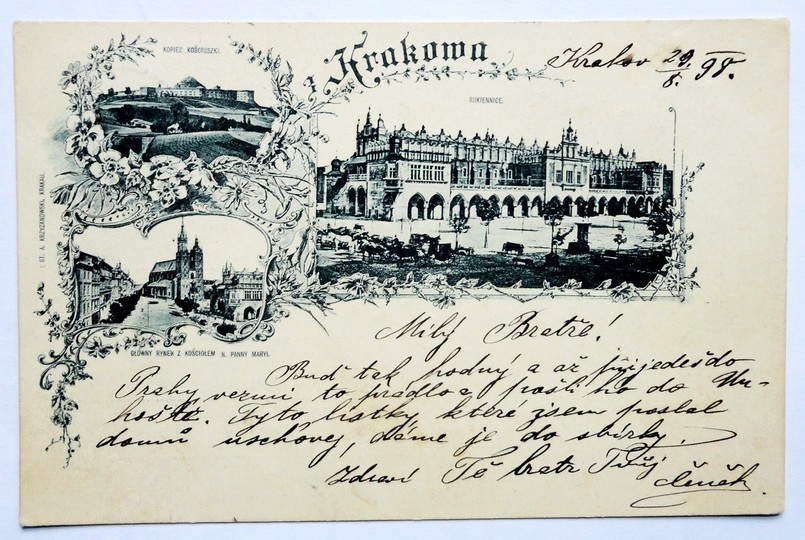 KOPIEC KOŚCIUSZKI.
z Krakowa
Krakov 29/8. 98.
SUKIENNICE.
ST. A. KRZYŻANOWSKI, KRAKAU.
GŁÓWNY RYNEK Z KOŚCIOŁEM N. PANNY MARYI.
Milý Bratře!
Buď tak hodný a až přijedeš do
Prahy, vezmi to prádlo a pošli ho do Un-
hoště. Tyto lístky které jsem poslal
domů uschovej, dáme je do sbírky.
Zdraví Tě bratr Tvůj
Čeněk.